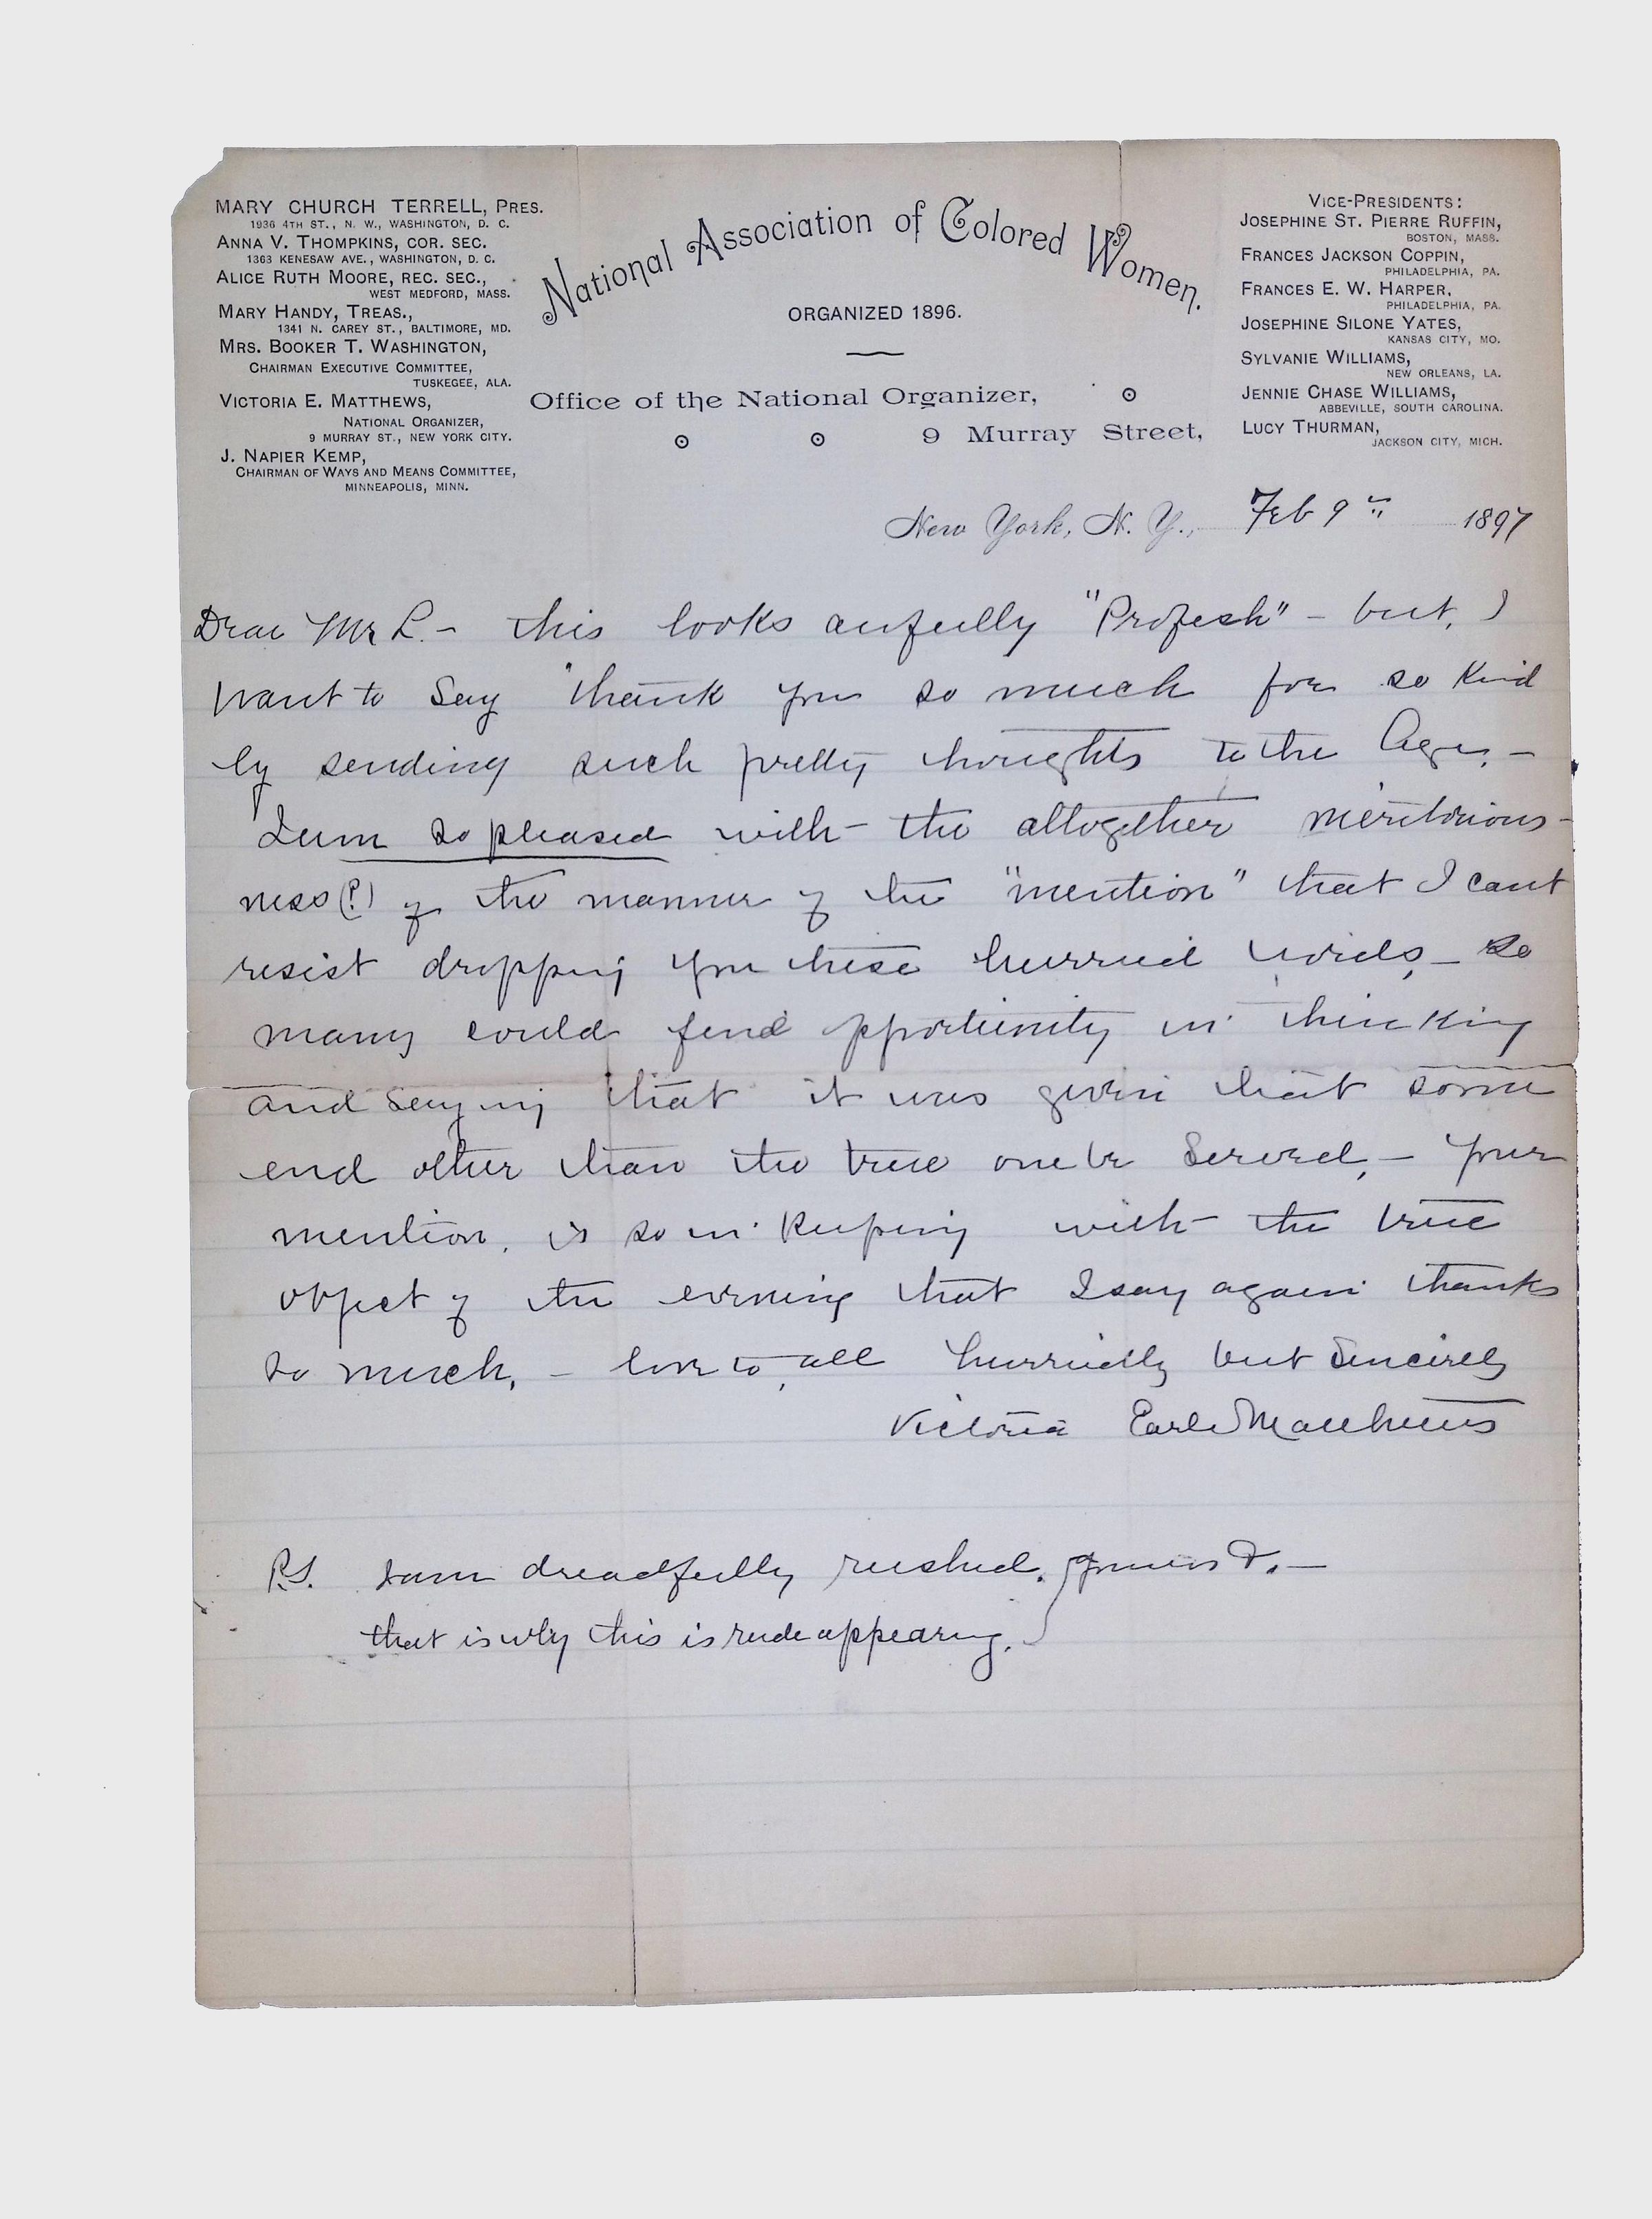 MARY CHURCH TERRELL, PRES.
1936 4TH ST., N. W., WASHINGTON, D. C.
ANNA V. THOMPKINS, COR. SEC.
1363 KENESAW AVE., WASHINGTON, D. C.
ALICE RUTH MOORE, REC. SEC.,
WEST MEDFORD, MASS.
MARY HANDY, TREAS.,
1341 N. CAREY ST., BALTIMORE, MD.
MRS. BOOKER T. WASHINGTON,
CHAIRMAN EXECUTIVE COMMITTEE,
TUSKEGEE, ALA.
VICTORIA E. MATTHEWS,
NATIONAL ORGANIZER,
9 MURRAY ST., NEW YORK CITY.
J. NAPIER KEMP,
CHAIRMAN OF WAYS AND MEANS COMMITTEE,
MINNEAPOLIS, MINN.
National Association of Colored Women.
ORGANIZED 1896.
Office of the National Organizer,
9 Murray Street,
VICE-PRESIDENTS:
JOSEPHINE ST. PIERRE RUFFIN,
BOSTON, MASS.
FRANCES JACKSON COPPIN,
PHILADELPHIA, PA.
FRANCES E. W. HARPER,
PHILADELPHIA, PA.
JOSEPHINE SILONE YATES,
KANSAS CITY, MO.
SYLVANIE WILLIAMS,
NEW ORLEANS, LA.
JENNIE CHASE WILLIAMS,
ABBEVILLE, SOUTH CAROLINA.
LUCY THURMAN,
JACKSON CITY, MICH.
New York, N. Y., Feb 9th 1897
Dear Mr L. - this looks awfully "Profesh" - but, I
want to say "thank you so much for so kind
ly sending such pretty thoughts to the Age, -
I am so pleased with the altogether meritorious-
ness (?) of the manner of the "mention" that I cant
resist dropping you these hurried words, - so
many could find opportunity in thinking
and saying that it was given that some
end other than the true one be served, - your
mention, is so in keeping with the true
object of the evening that I say again thanks
so much, - love to all hurriedly but sincerely
Victoria Earle Matthews
P.S. I am dreadfully rushed. yours &. -
that is why this is rude appearing.